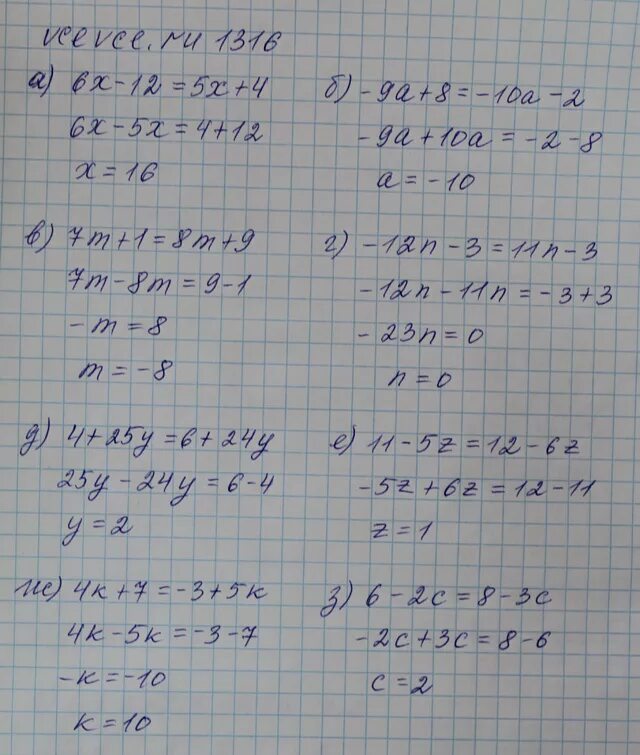 vcevce.ru 1316
а) 6x-12=5x+4
6x-5x=4+12
x=16
б) -9a+8=-10a-2
-9a+10a=-2-8
a=-10
в) 7m+1=8m+9
7m-8m=9-1
-m=8
m=-8
г) -12n-3=11n-3
-12n-11n=-3+3
-23n=0
n=0
д) 4+25y=6+24y
25y-24y=6-4
y=2
е) 11-5z=12-6z
-5z+6z=12-11
z=1
ж) 4к+7=-3+5к
4к-5к=-3-7
-к=-10
к=10
з) 6-2c=8-3c
-2c+3c=8-6
c=2